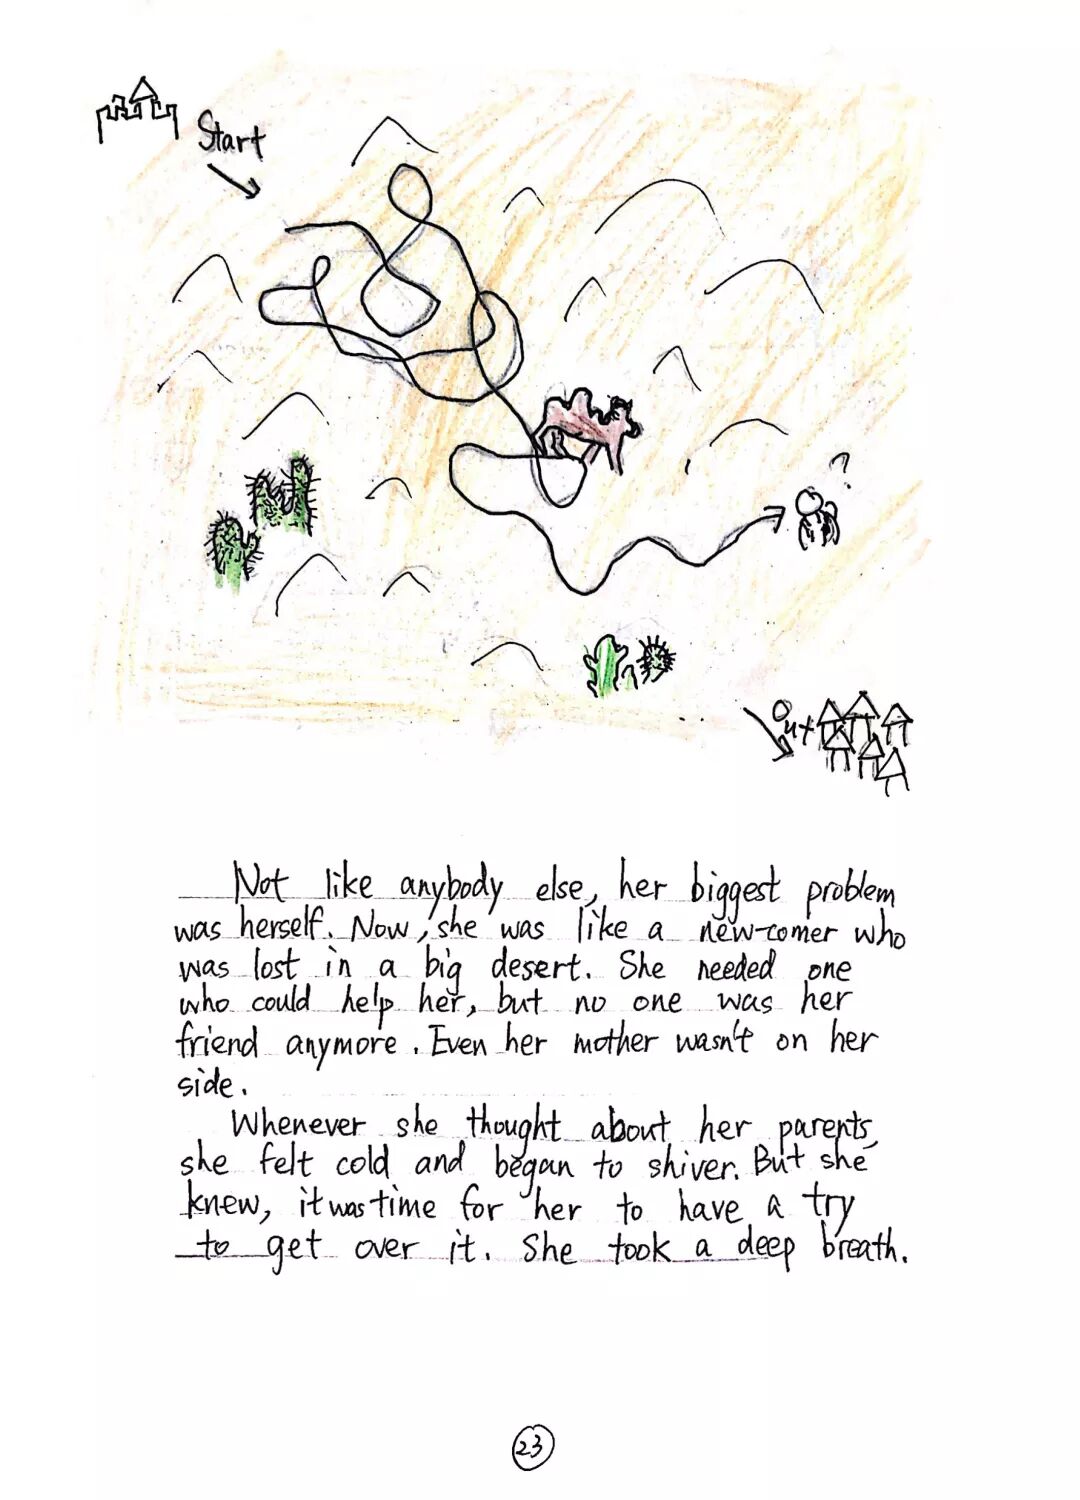 Start
?
Out
Not like anybody else, her biggest problem
was herself. Now, she was like a new-comer who
was lost in a big desert. She needed one
who could help her, but no one was her
friend anymore. Even her mother wasn't on her
side.
Whenever she thought about her parents,
she felt cold and began to shiver. But she
knew, it was time for her to have a try
to get over it. She took a deep breath.
23